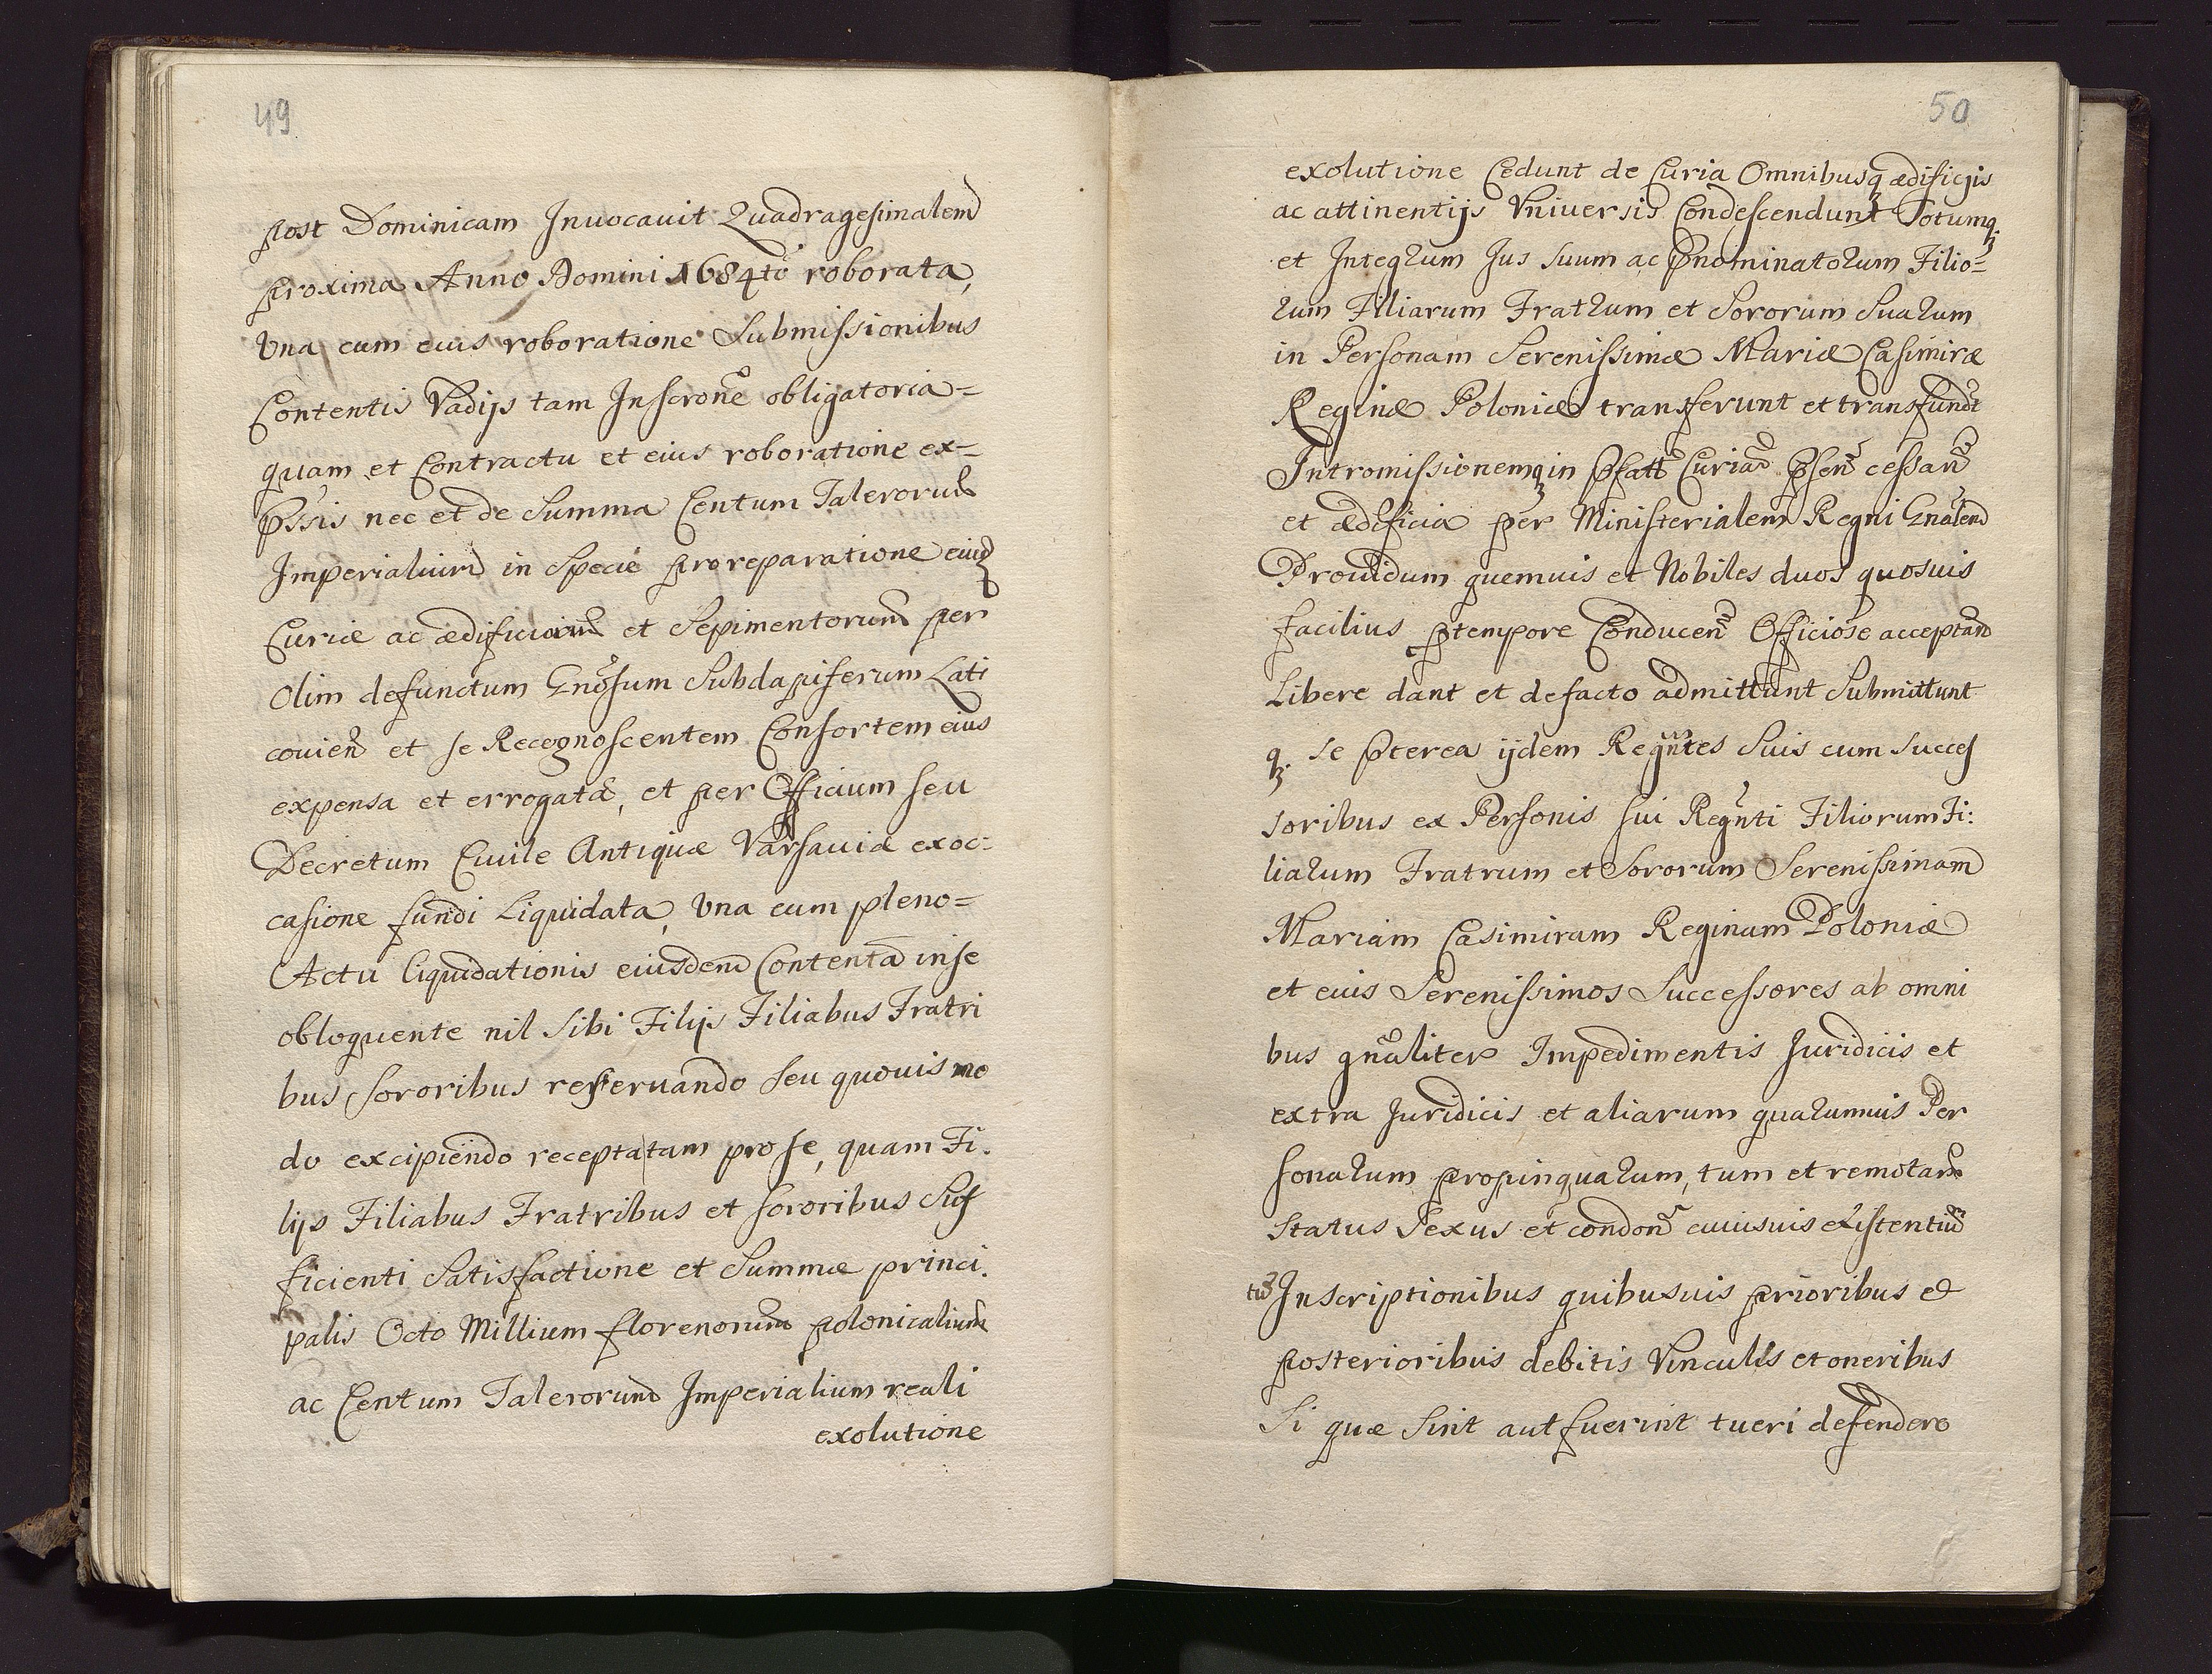 49
post Dominicam Inuocauit Quadragesimalem
proxima Anno Domini 1684to roborata,
Vna cum eius roboratione Submissionibus
Contentis Vadijs tam Inscrone obligatoria=
quam et Contractu et eius roboratione ex=
pssis nec et de Summa Centum Talerorum
Imperialium in Specie pro reparatione eiusd
Curiæ ac ædificiorum et Sepimentorum per
Olim defunctum Gnosum Subdapiferum Lati
couien et se Recognoscentem Consortem eius
expensa et errogata, et per Officium seu
Decretum Ciuile Antiquæ Varsauiæ exoc=
casione fundi Liquidata, Vna cum pleno=
Actu liquidationis eiusdem Contenta in se
obloquente nil Sibi Filijs Filiabus Fratri
bus Sororibus reseruando seu quouis mo
do excipiendo recepta tam pro se, quam Fi.
lijs Filiabus Fratribus et Sororibus Suf
ficienti Satisfactione et Summæ princi.
palis Octo Millium florenorum polonicalium
ac Centum Talerorum Imperialium reali
exolutione
50
exolutione Cedunt de Curia Omnibusq ædificijs
ac attinentijs Vniuersis Condescendunt Totumq.
et Integrum Jus Suum ac pnominatorum Filio=
rum Filiarum Fratrum et Sororum Suarum
in Personam Serenissimæ Mariæ Casimiræ
Reginæ Poloniæ transferunt et transfundt
Intromissionemq in pfatt Curiam psen cessan
et ædificia per Ministerialem Regni Gnalem
Prouidum quemuis et Nobiles duos quosuis
facilius ptempore Conducen Officiose acceptan
Libere dant et defacto admittunt Submittunt
q. se pterea ijdem Regntes Suis cum Succes
soribus ex Personis sui Regnti Filiorum Fi:
liarum Fratrum et Sororum Serenissimam
Mariam Casimiram Reginam Poloniæ
et eius Serenissimos Successores ab omni
bus gnaliter Impedimentis Juridicis et
extra Juridicis et aliarum quarumuis Per
sonarum propinquarum, tum et remotarum
Status Sexus et condon cuiusuis existentium
Inscriptionibus quibusuis prioribus et
posterioribus debitis Vinculis et oneribus
Si quæ Sint aut fuerint tueri defendere